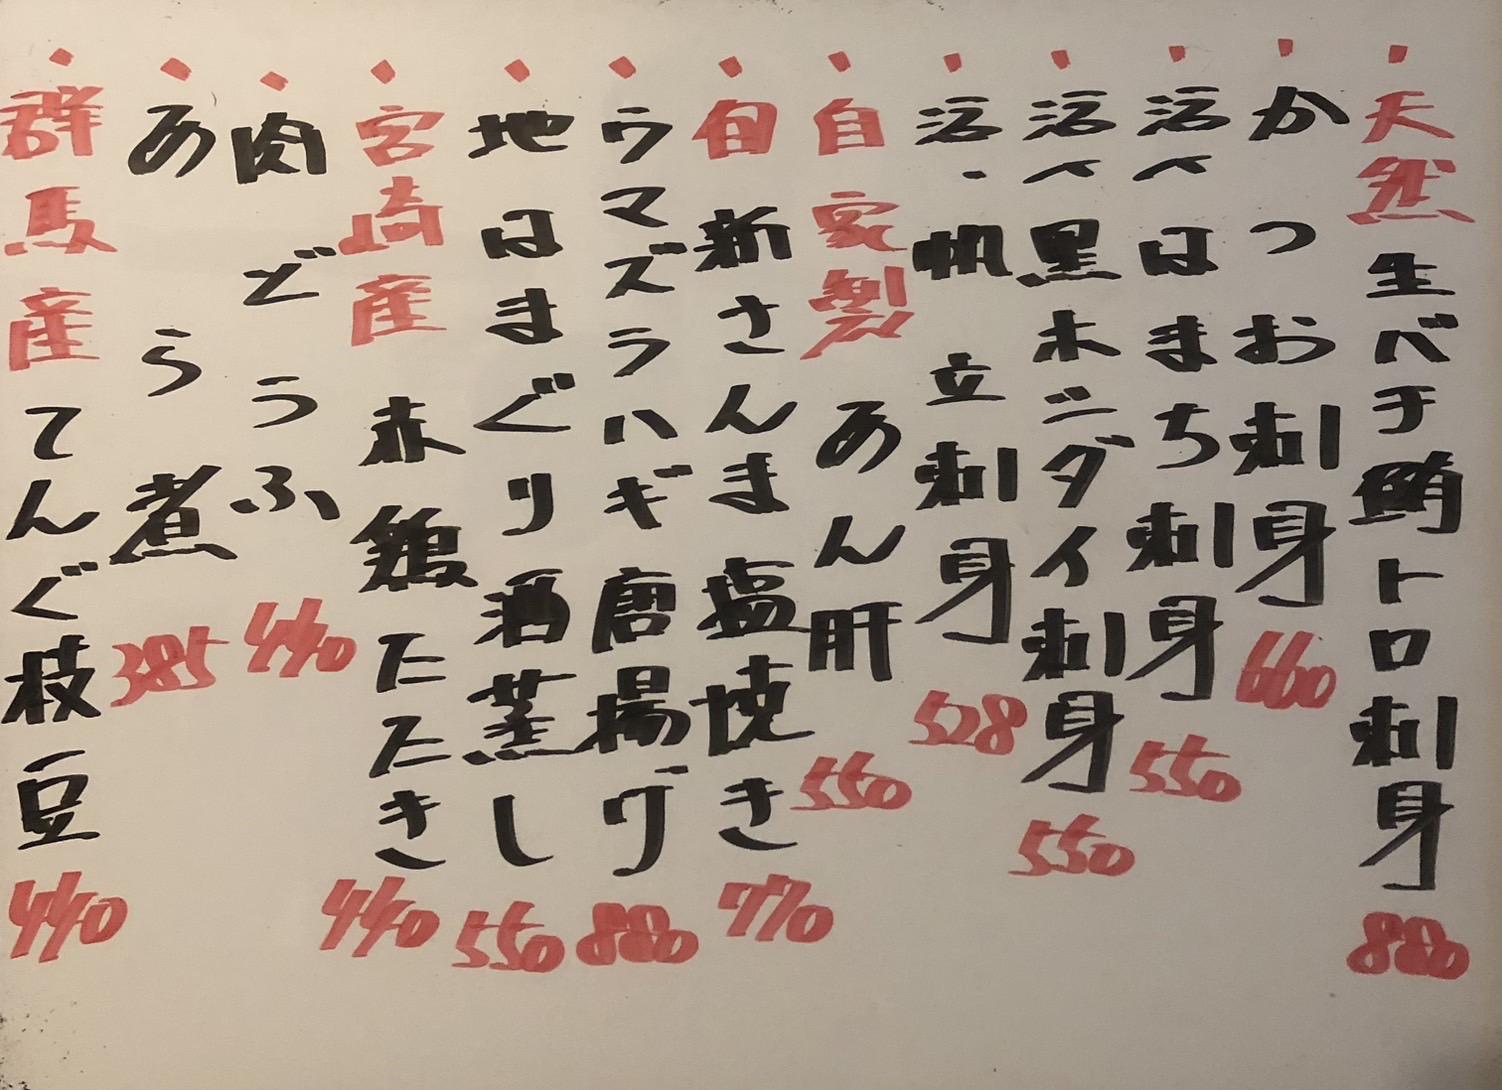 天然生ベチ鮪トロ刺身 880
かつお刺身 660
活〆はまち刺身 550
活〆黒ホシダイ刺身 550
活・帆立刺身 528
自家製あん肝 550
旬新さんま塩焼き 770
ウマズラハギ唐揚げ 880
地はまぐり酒蒸し 550
宮崎産赤鶏たたき 440
肉どうふ 440
あら煮 385
群馬産てんぐ枝豆 440